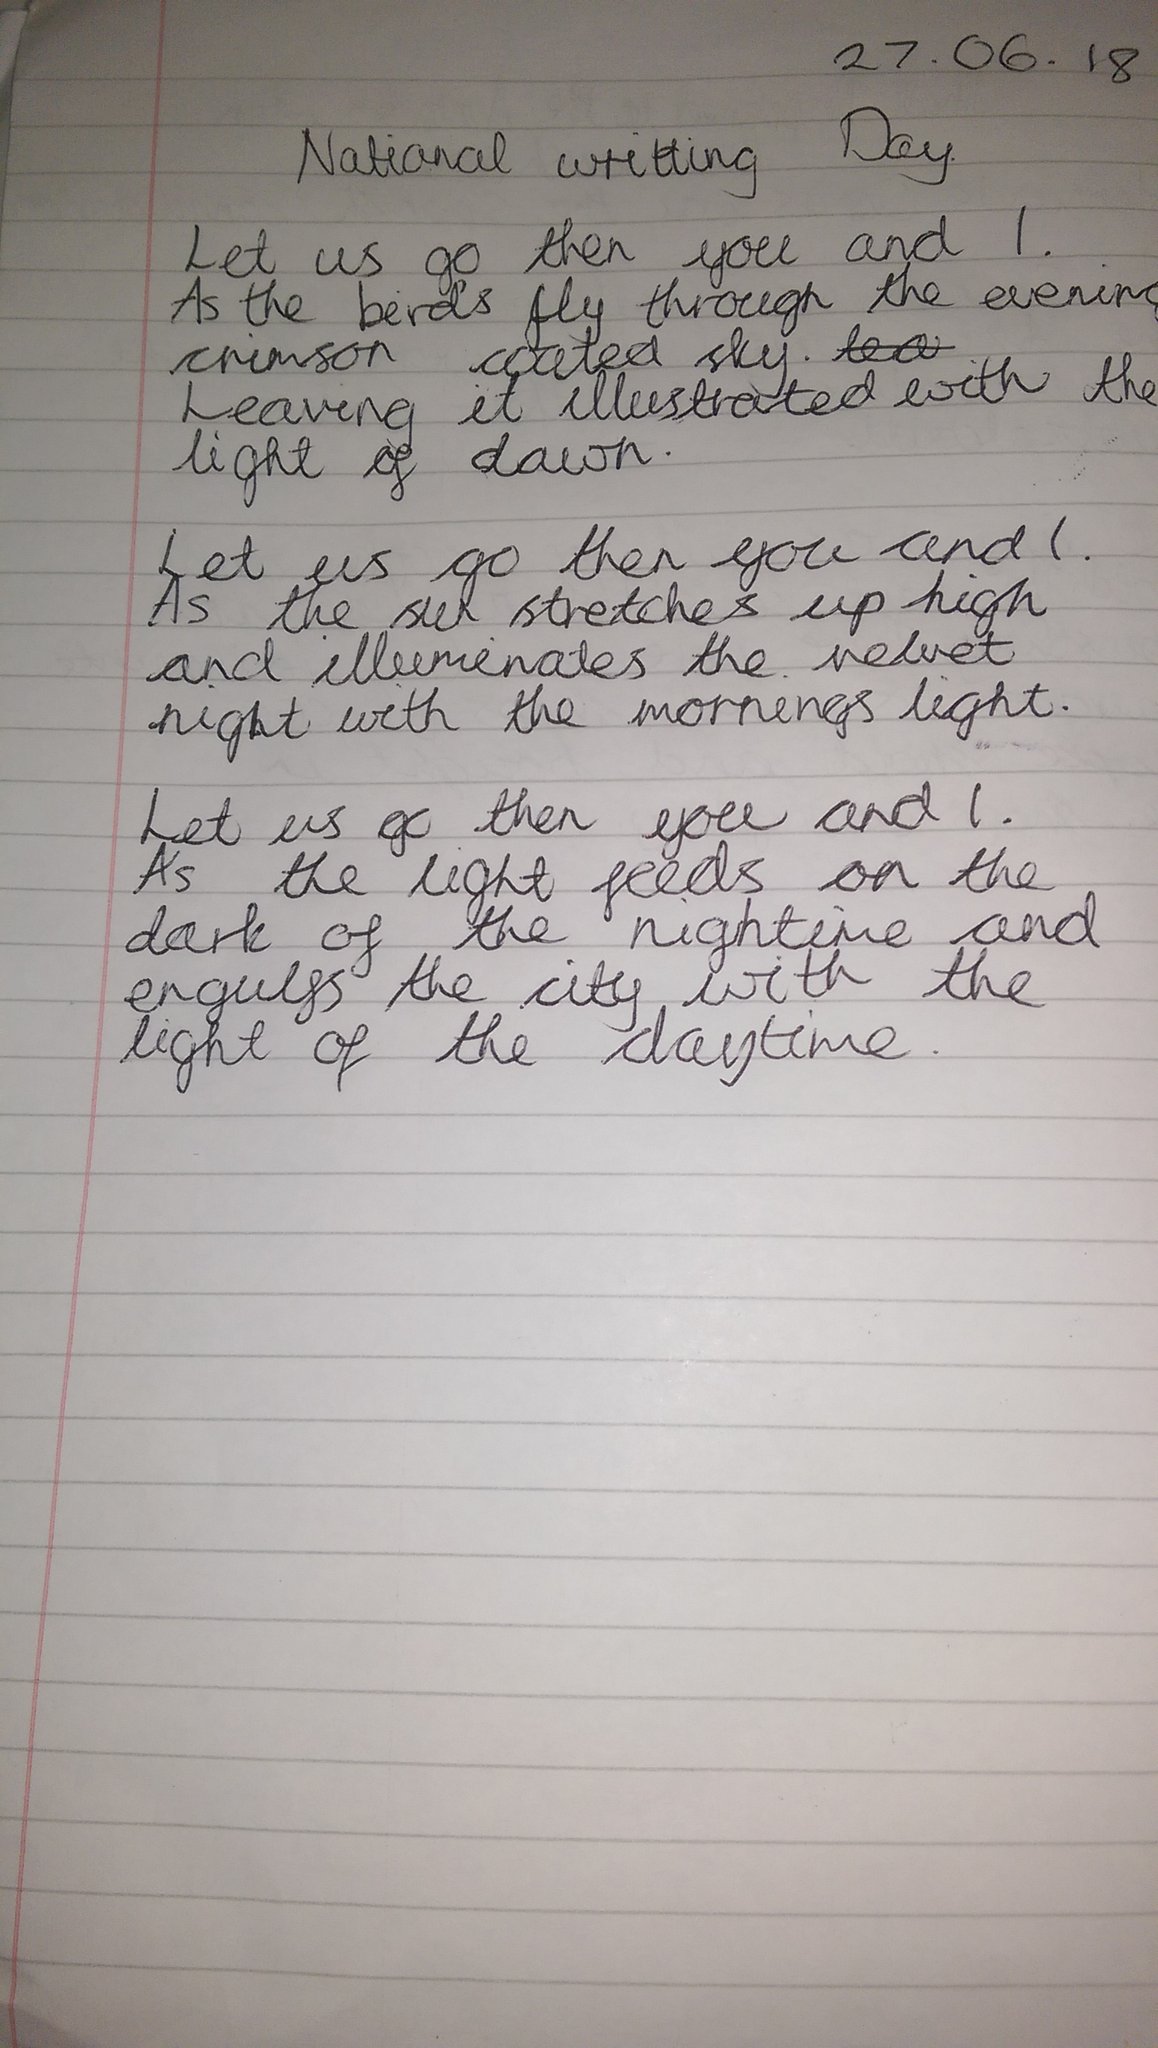 27.06.18
National writting Day
Let us go then you and I.
As the bird's fly through the evening
crimson coated sky.
Leaving it illustrated with the
light of dawn.
Let us go then you and I.
As the sun stretches up high
and illuminates the velvet
night with the mornings light.
Let us go then you and I.
As the light feeds on the
dark of the nightime and
engulfs the city with the
light of the daytime.